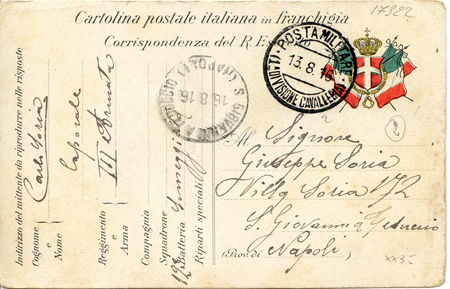 17322
Cartolina postale italiana in franchigia
Corrispondenza del R. E
POSTA MILITARE
13.8.16
(1ª DIVISIONE CAVALLERIA)
S. GIOVANNI A TEDUCCIO (NAPOLI)
16.8.16
2
Al Signore
Giuseppe Soria
Villa Soria 172
S. Giovanni a Teduccio
(Prov. di Napoli
Indirizzo del mittente da riprodurre nelle risposte
Cognome e Nome Carlo Soria
Caporale
Reggimento e Arma III Armata
Compagnia
Squadrone
Batteria
Riparti speciali